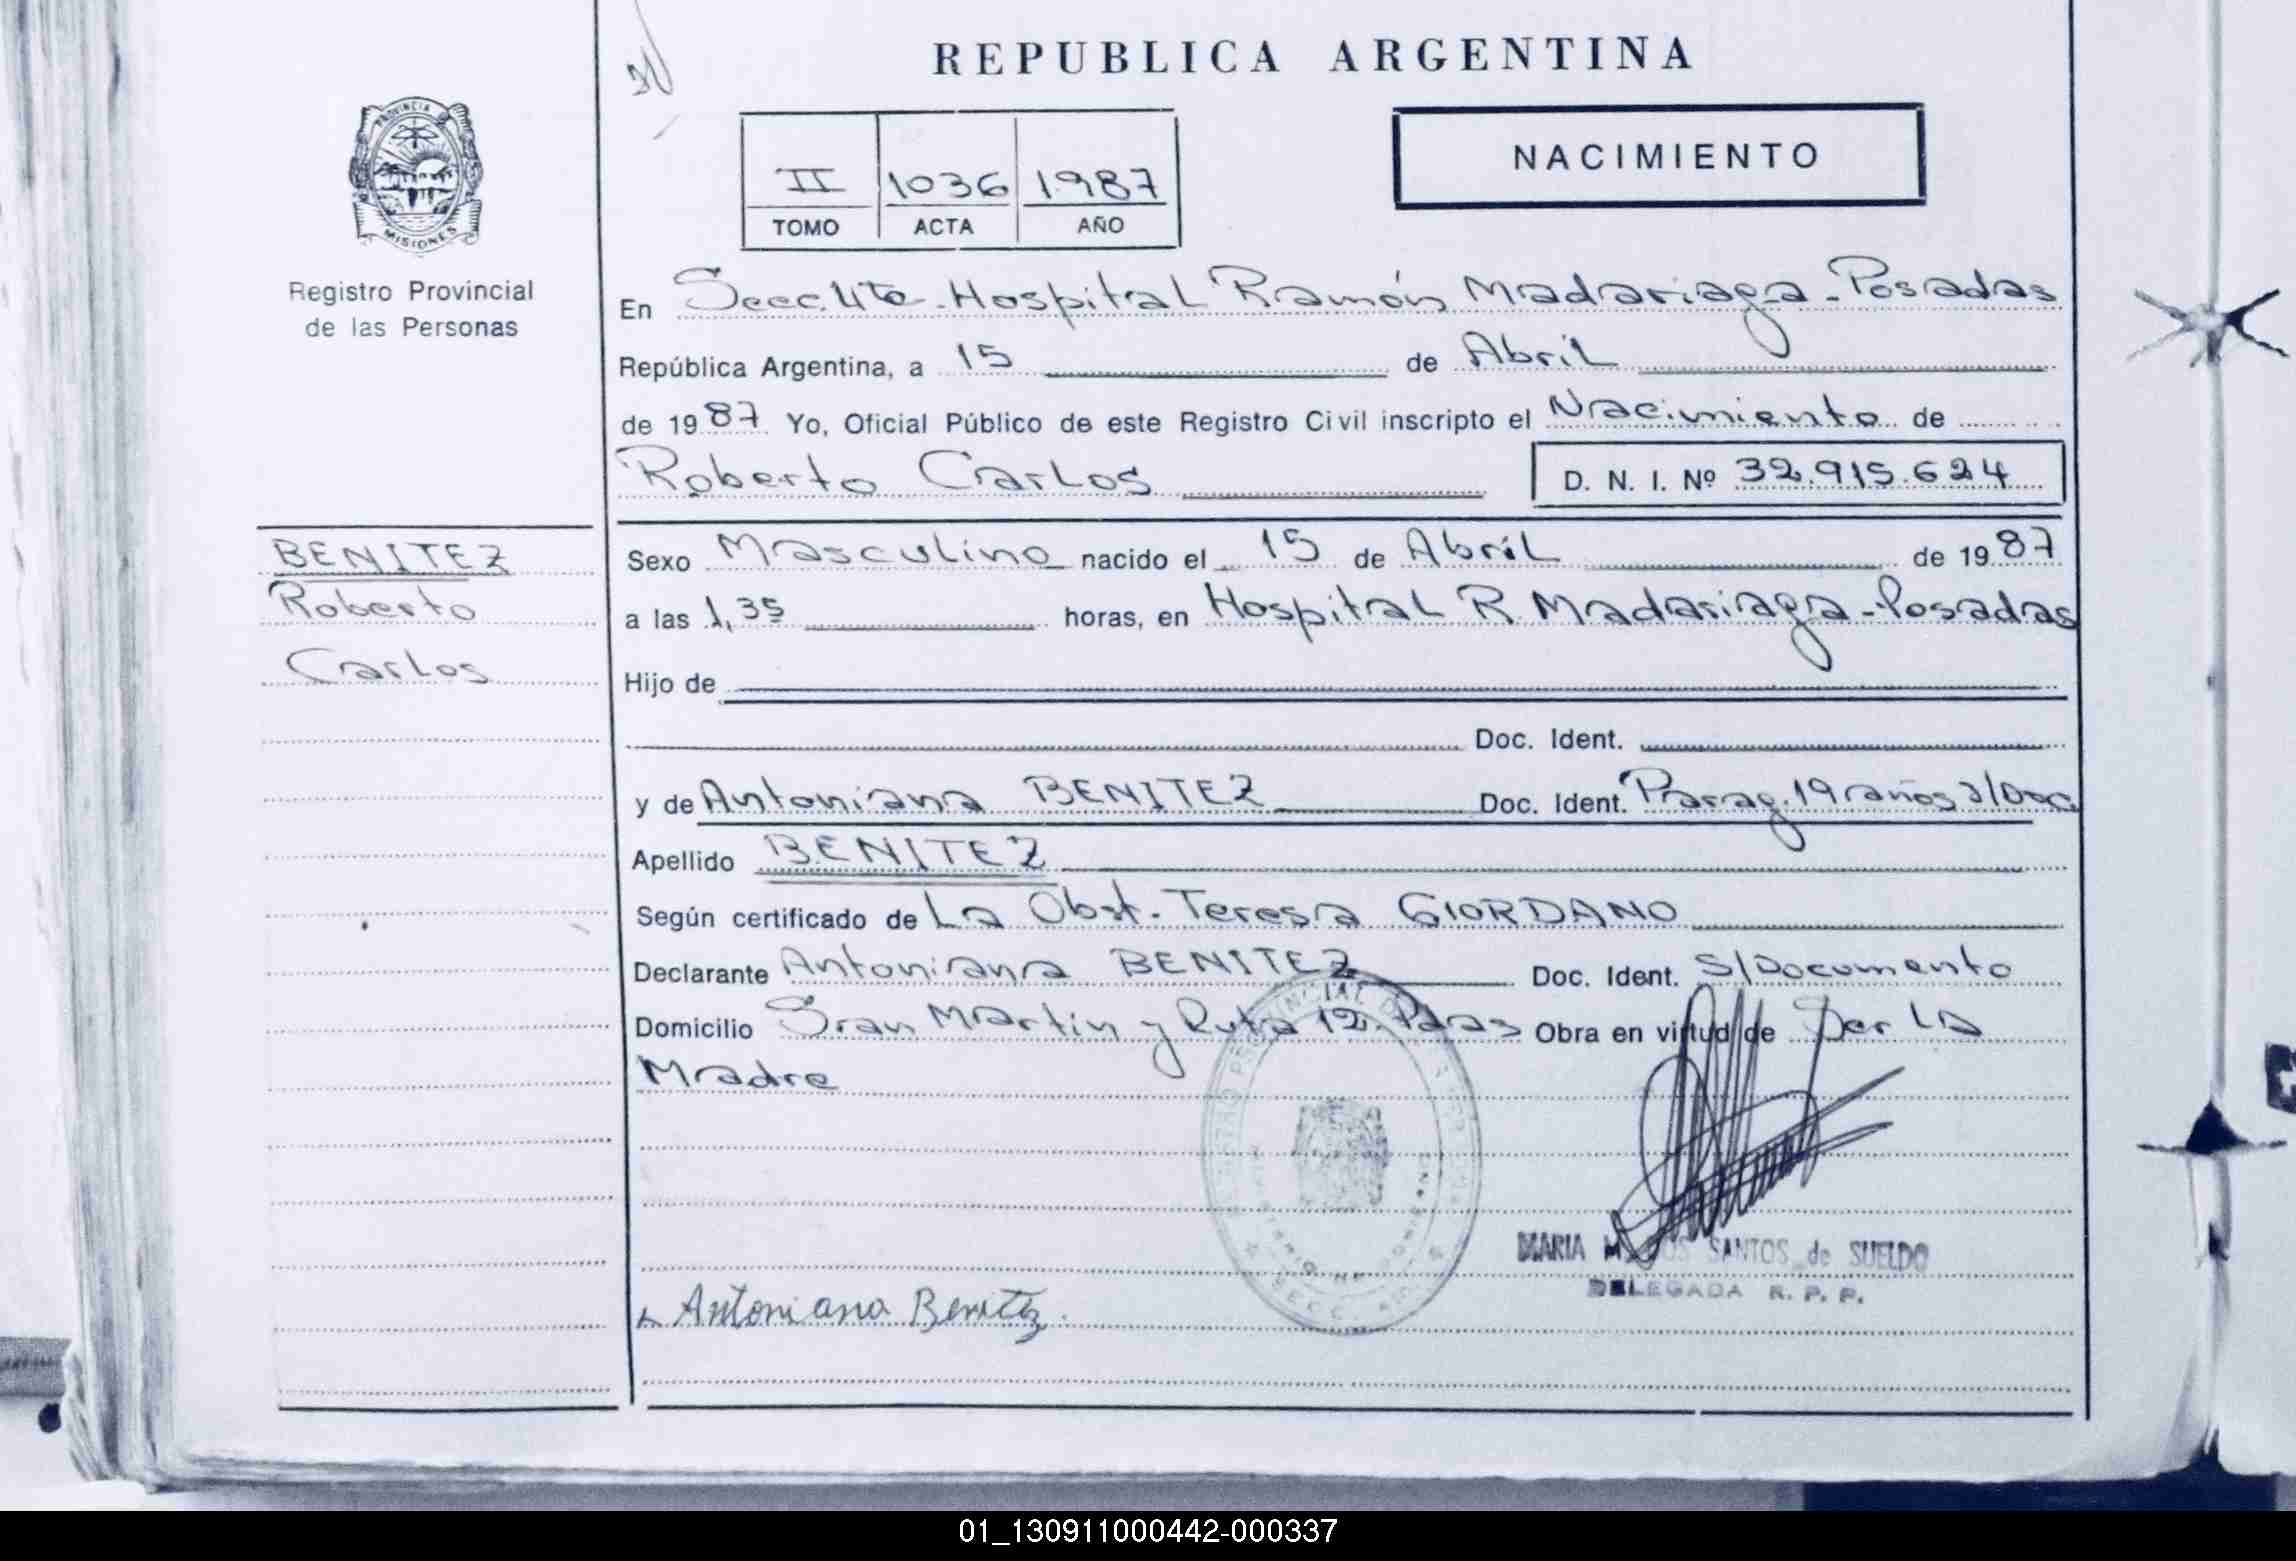 REPUBLICA ARGENTINA
PROVINCIA
MISIONES
Registro Provincial
de las Personas
II 1036 1987
TOMO ACTA AÑO
NACIMIENTO
En Secc. 4ta - Hospital Ramón Madariaga - Posadas
República Argentina, a 15 de Abril
de 1987 Yo, Oficial Público de este Registro Civil inscripto el Nacimiento de
Roberto Carlos D. N. I. Nº 32.915.624
BENITEZ
Roberto
Carlos
Sexo Masculino nacido el 15 de Abril de 1987
a las 1,35 horas, en Hospital R. Madariaga - Posadas
Hijo de
Doc. Ident.
y de Antoniana BENITEZ Doc. Ident. Parag. 19 años s/Doc.
Apellido BENITEZ
Según certificado de La Obst. Teresa GIORDANO
Declarante Antoniana BENITEZ Doc. Ident. S/Documento
Domicilio San Martin y Ruta 12. Pdas Obra en virtud de Ser La
Madre
MARIA SANTOS de SUELDO
DELEGADA R. P. P.
Antoniana Benitez.
01_130911000442-000337